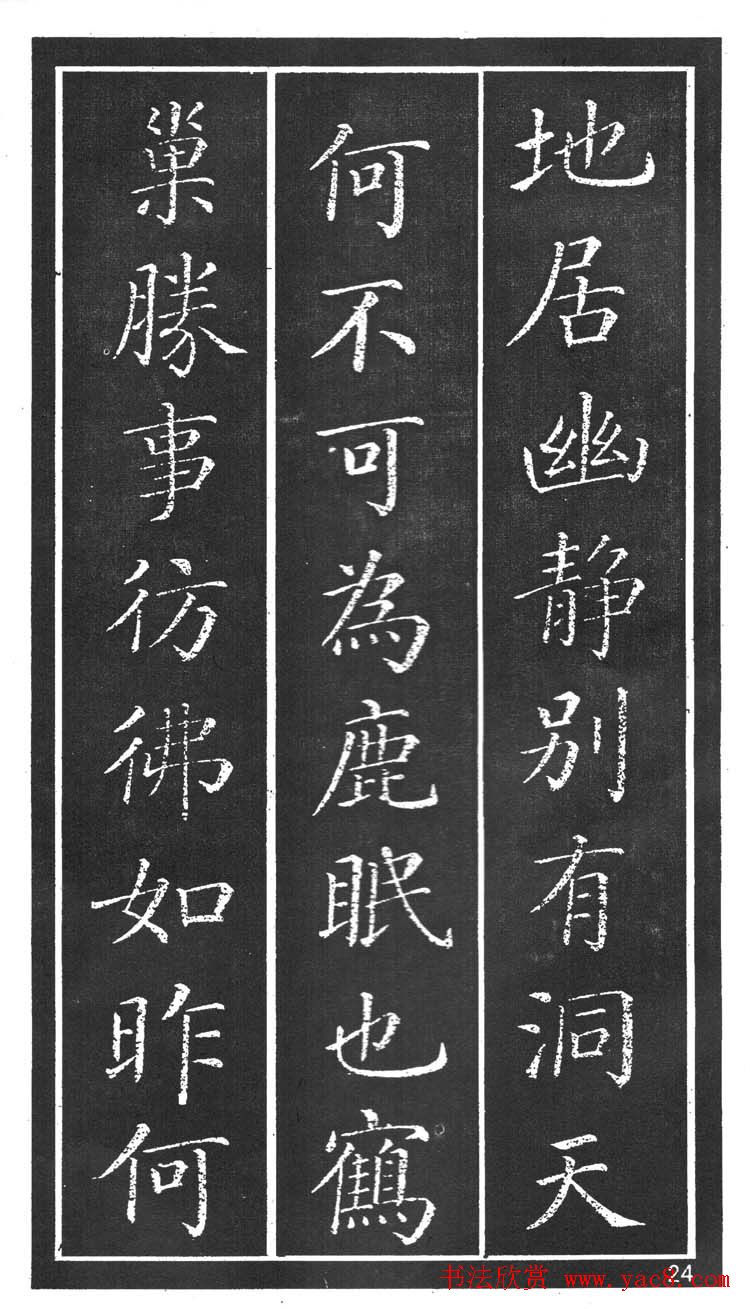 地居幽静别有洞天
何不可為鹿眠也鶴
巢勝事彷彿如昨何
24
书法欣赏 www.yac8.com